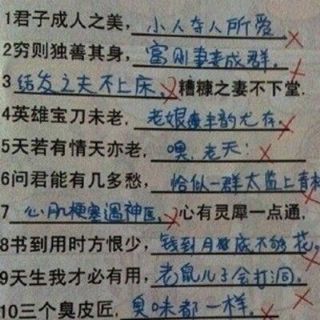 1君子成人之美，小人夺人所爱
2穷则独善其身，富则妻妾成群。
3结发之夫不上床，糟糠之妻不下堂.
4英雄宝刀未老，老娘丰韵尤存。
5天若有情天亦老，噢，老天！
6问君能有几多愁，恰似一群太监上青楼
7心肌梗塞遇神医，心有灵犀一点通，
8书到用时方恨少，钱到月底不够花。
9天生我才必有用，老鼠儿子会打洞。
10三个臭皮匠，臭味都一样。